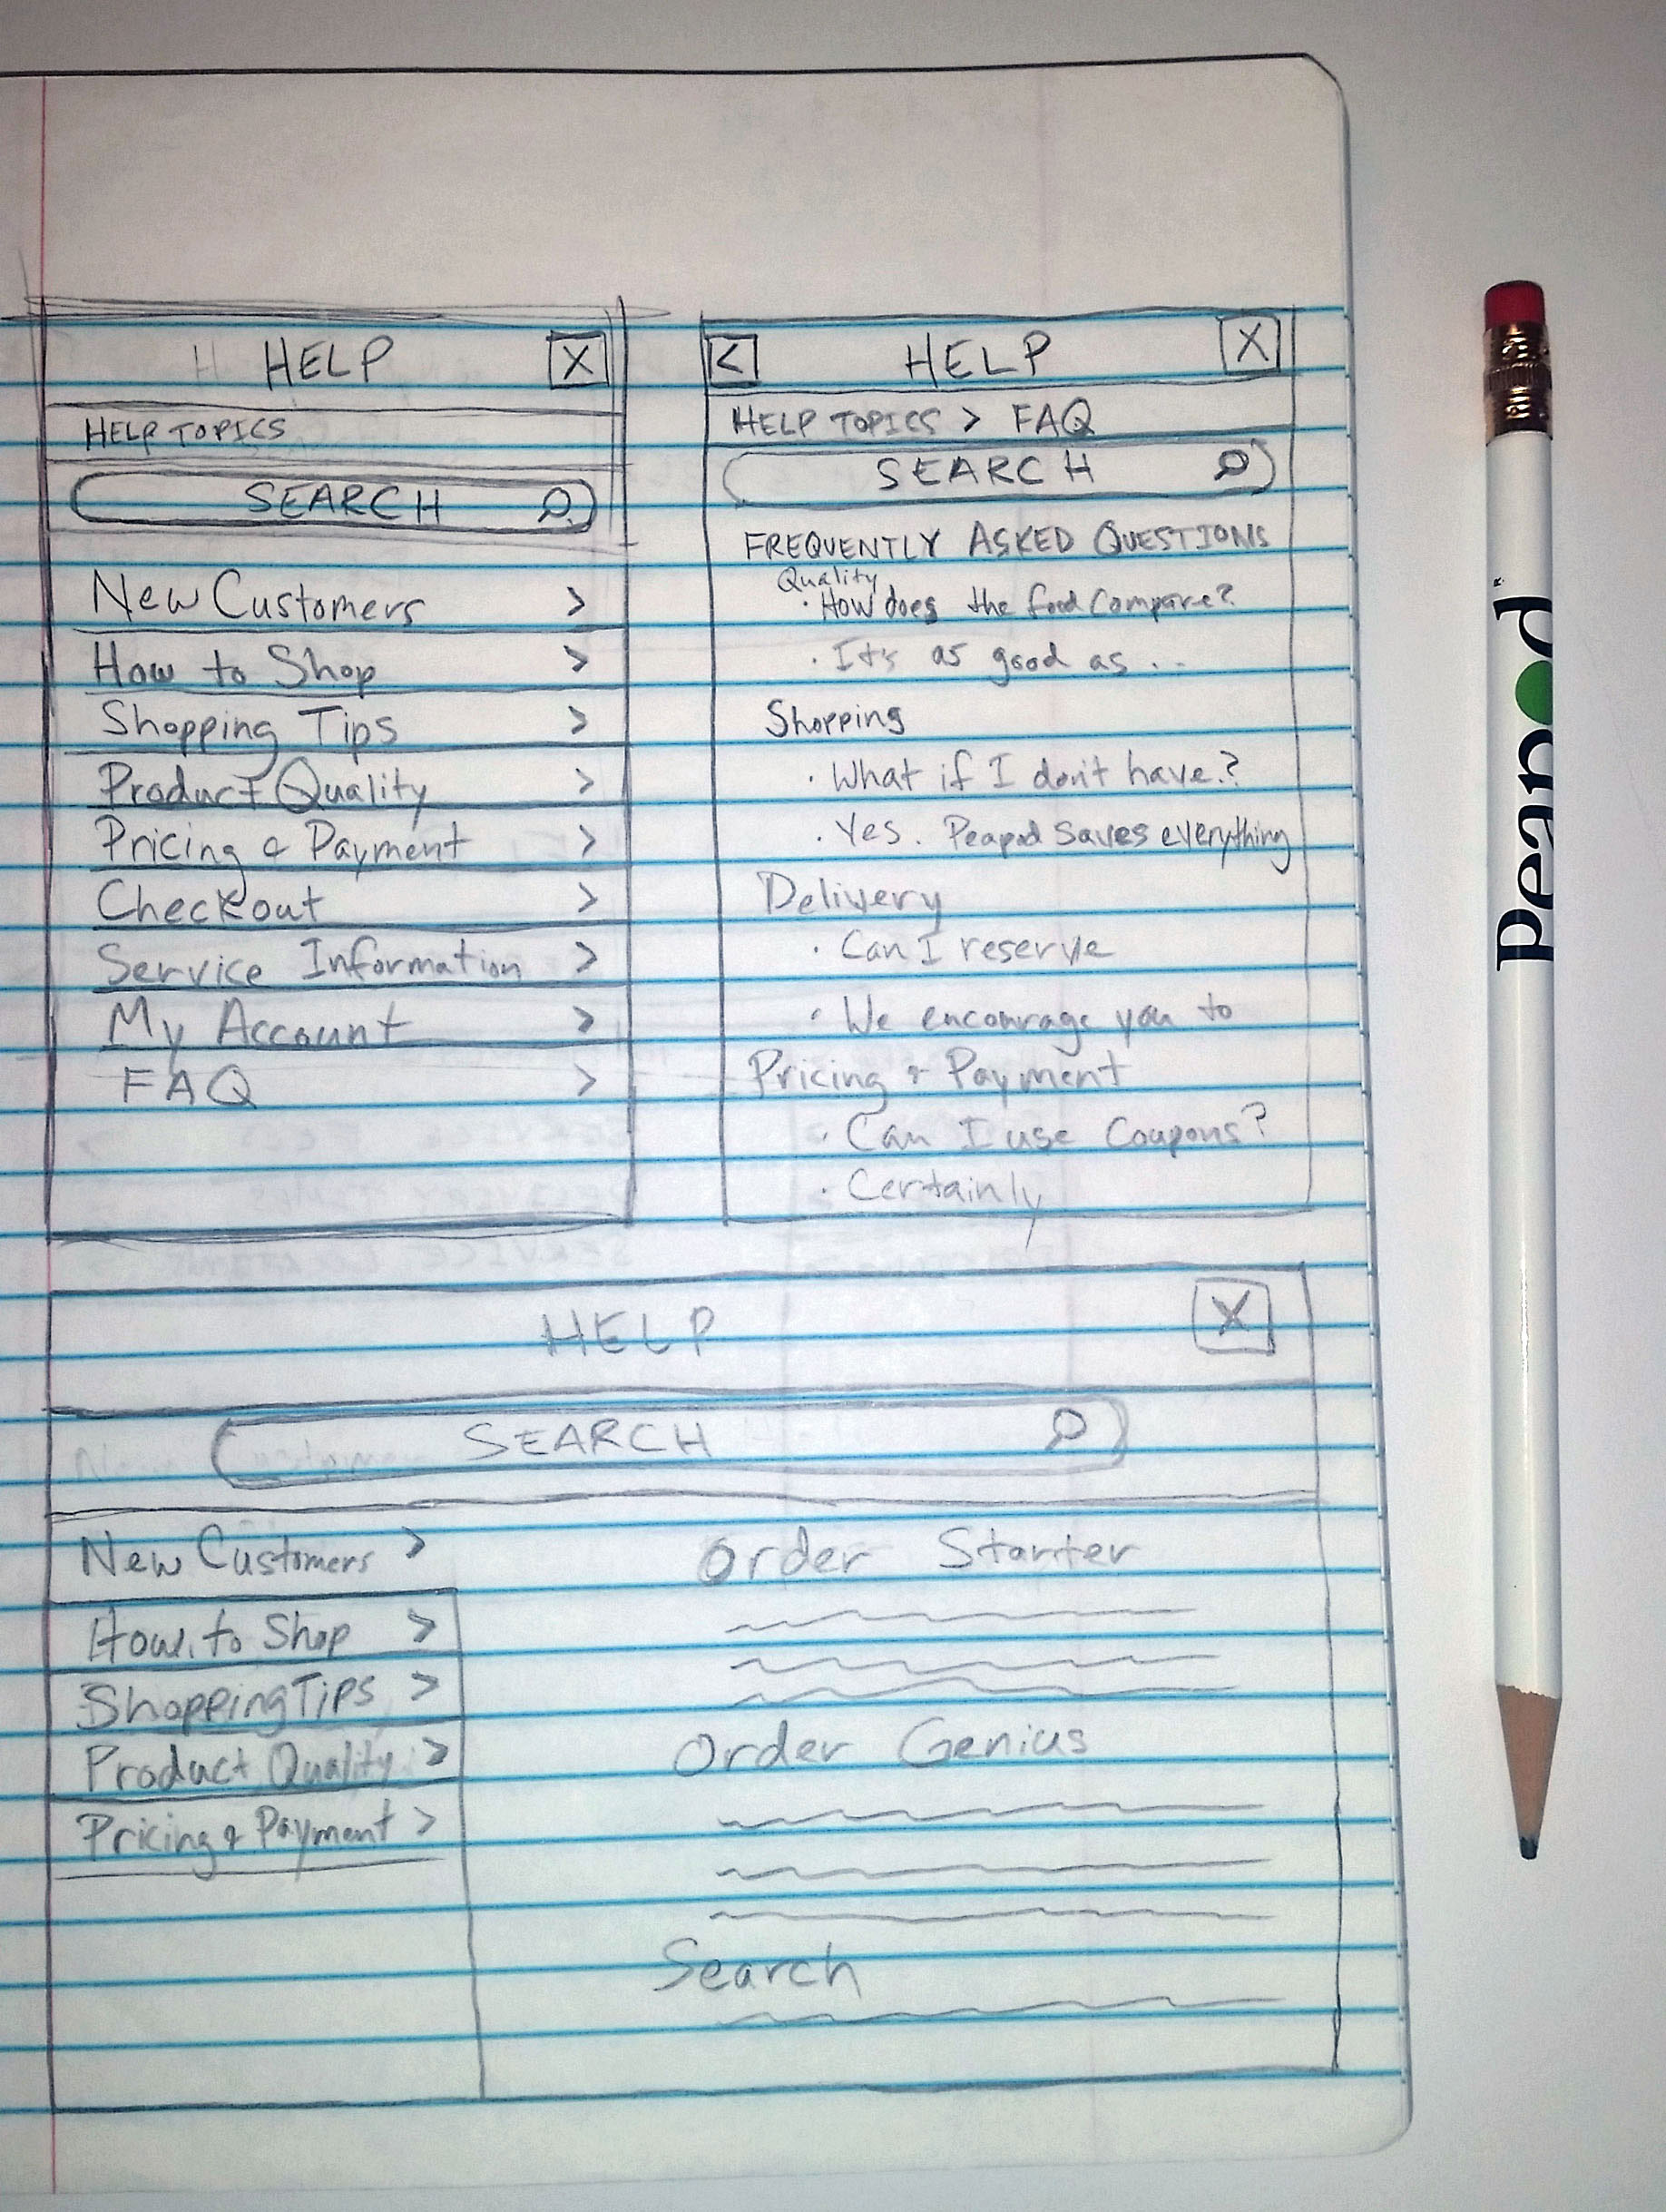 HELP X
HELP TOPICS
SEARCH
New Customers >
How to Shop >
Shopping Tips >
Product Quality >
Pricing & Payment >
Checkout >
Service Information >
My Account >
FAQ >
< HELP X
HELP TOPICS > FAQ
SEARCH
FREQUENTLY ASKED QUESTIONS
Quality
· How does the food compare?
· It's as good as ...
Shopping
· What if I don't have.?
· Yes. Peapod saves everything
Delivery
· Can I reserve
· We encourage you to
Pricing & Payment
· Can I use Coupons?
· Certainly
HELP X
SEARCH
New Customers >
How to Shop >
Shopping Tips >
Product Quality >
Pricing & Payment >
Order Starter
Order Genius
Search
Peapod